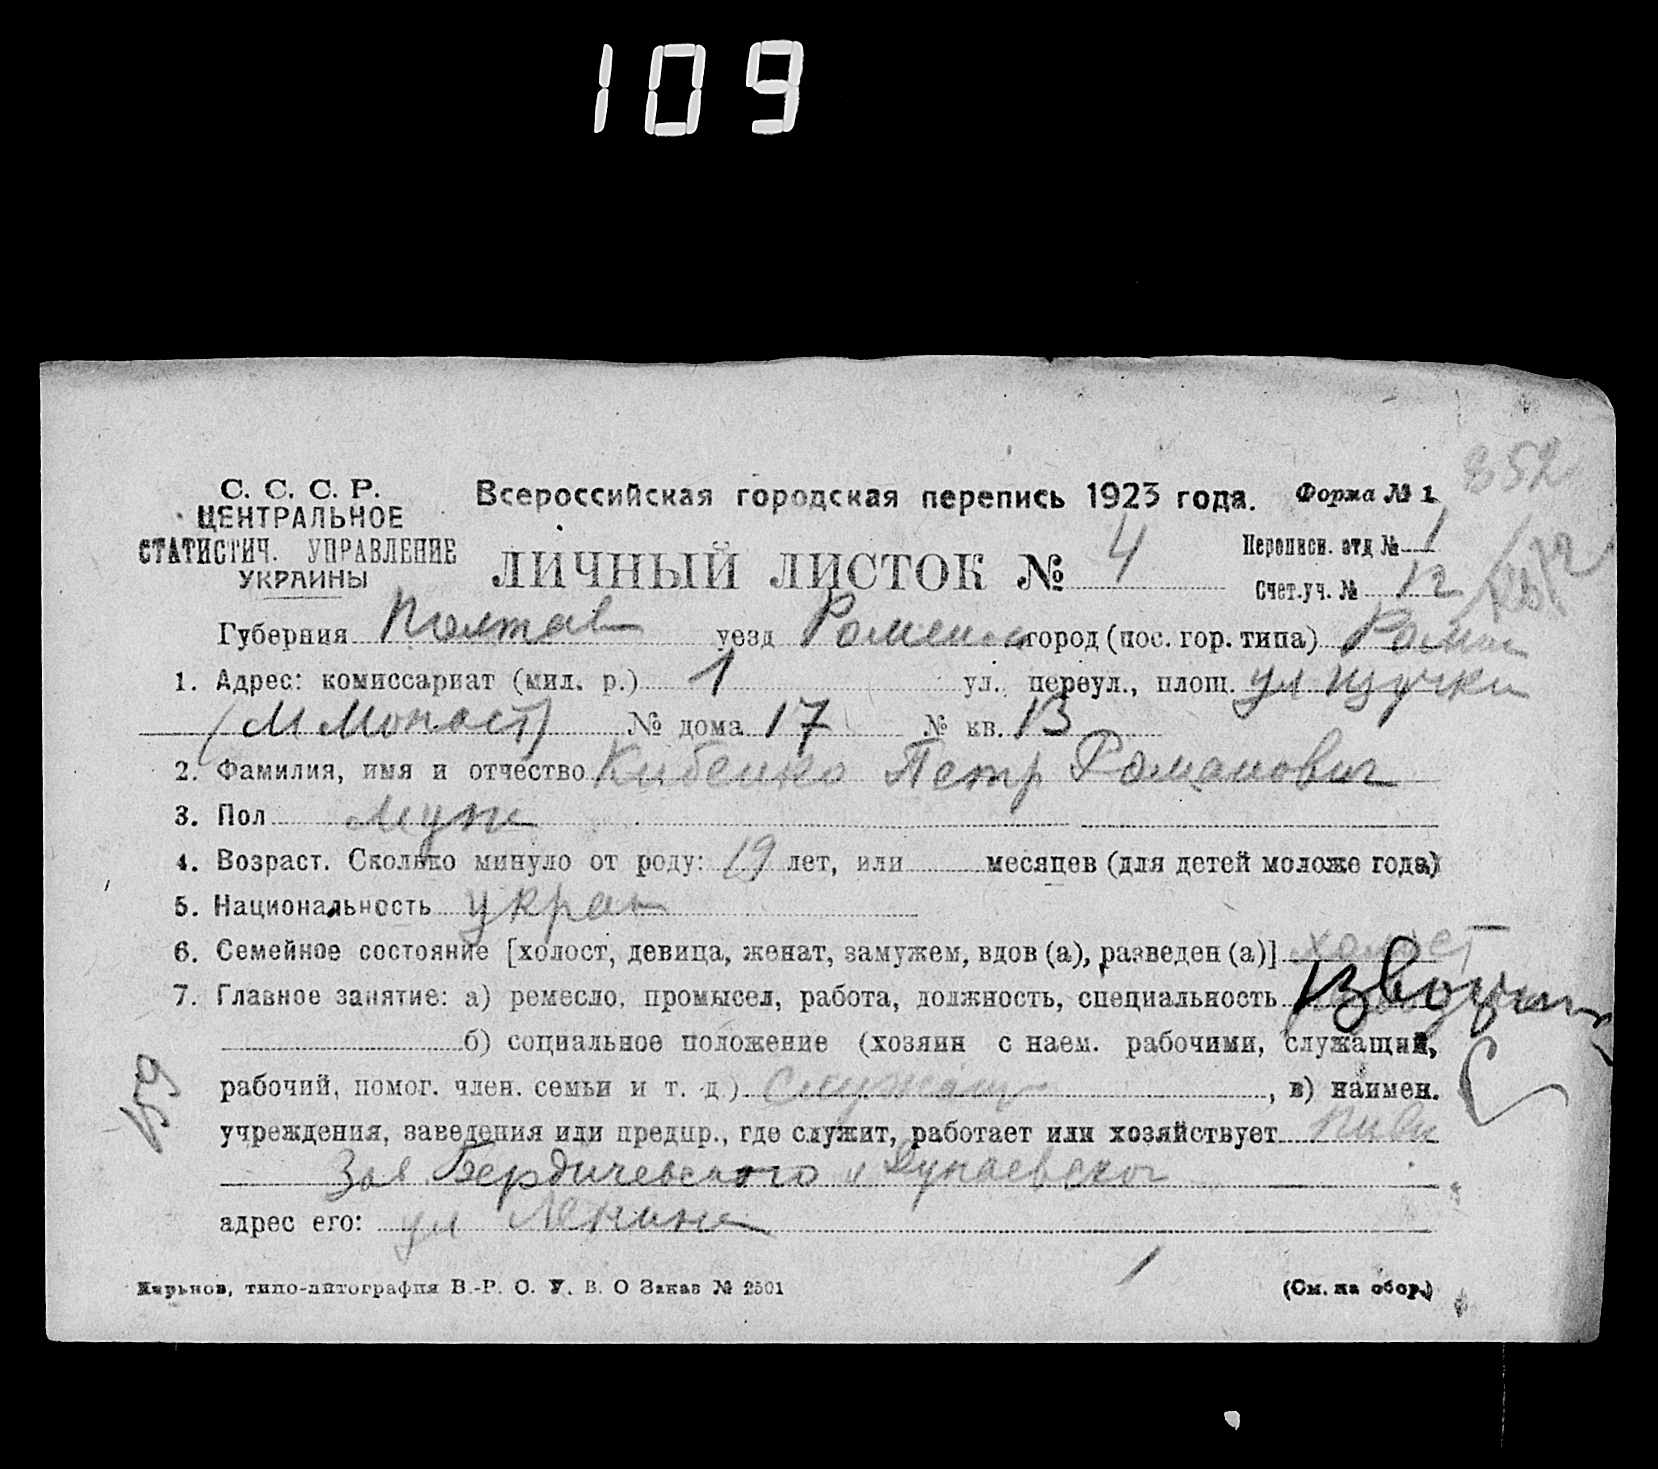 109
852
С. С. С. Р.
ЦЕНТРАЛЬНОЕ
СТАТИСТИЧ. УПРАВЛЕНИЕ
УКРАИНЫ
Всероссийская городская перепись 1923 года. Форма № 1
ЛИЧНЫЙ ЛИСТОК № 4
Переписн. отд № 1
Счет.уч. № 12
Губерния Полтав уезд Роменс город (пос. гор. типа) Ромн
1. Адрес: комиссариат (мил. р.) 1 ул., переул., площ. ул
(М Монаст) № дома 17 № кв. 13
2. Фамилия, имя и отчество Кибенко Петр Романович
3. Пол муж
4. Возраст. Сколько минуло от роду: 19 лет, или месяцев (для детей моложе года)
5. Национальность укра
6. Семейное состояние [холост, девица, женат, замужем, вдов (а), разведен (а)] холост
7. Главное занятие: а) ремесло, промысел, работа, должность, специальность
б) социальное положение (хозяин с наем. рабочими, служащий,
рабочий, помог. член. семьи и т. д.) служащ, в) наимен.
учреждения, заведения или предпр., где служит, работает или хозяйствует Пиво
Зав Бердичевского и Дунаевског
адрес его: ул Ленина
159
1
Харьков, типо-литография В.-Р. С. У. В. О Заказ № 2501 (См. на обор.)